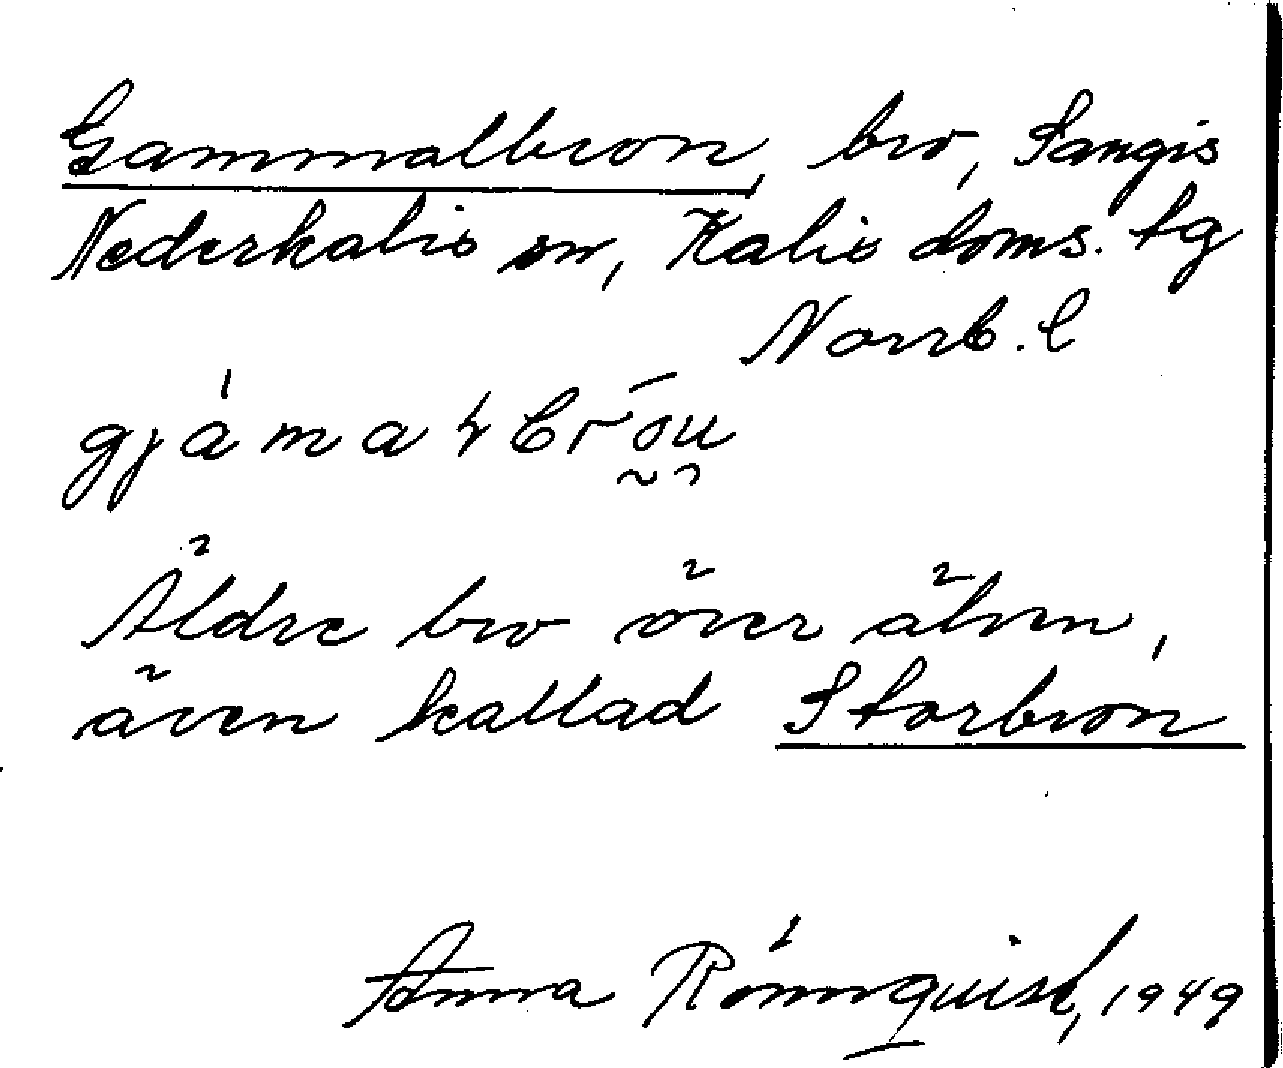 Gammalbron, bro, Sangis
Nederkalix sn, Kalix doms. tg
Norrb. l
Äldre bro över älven,
även kallad Storbron
Anna Rönnquist, 1949